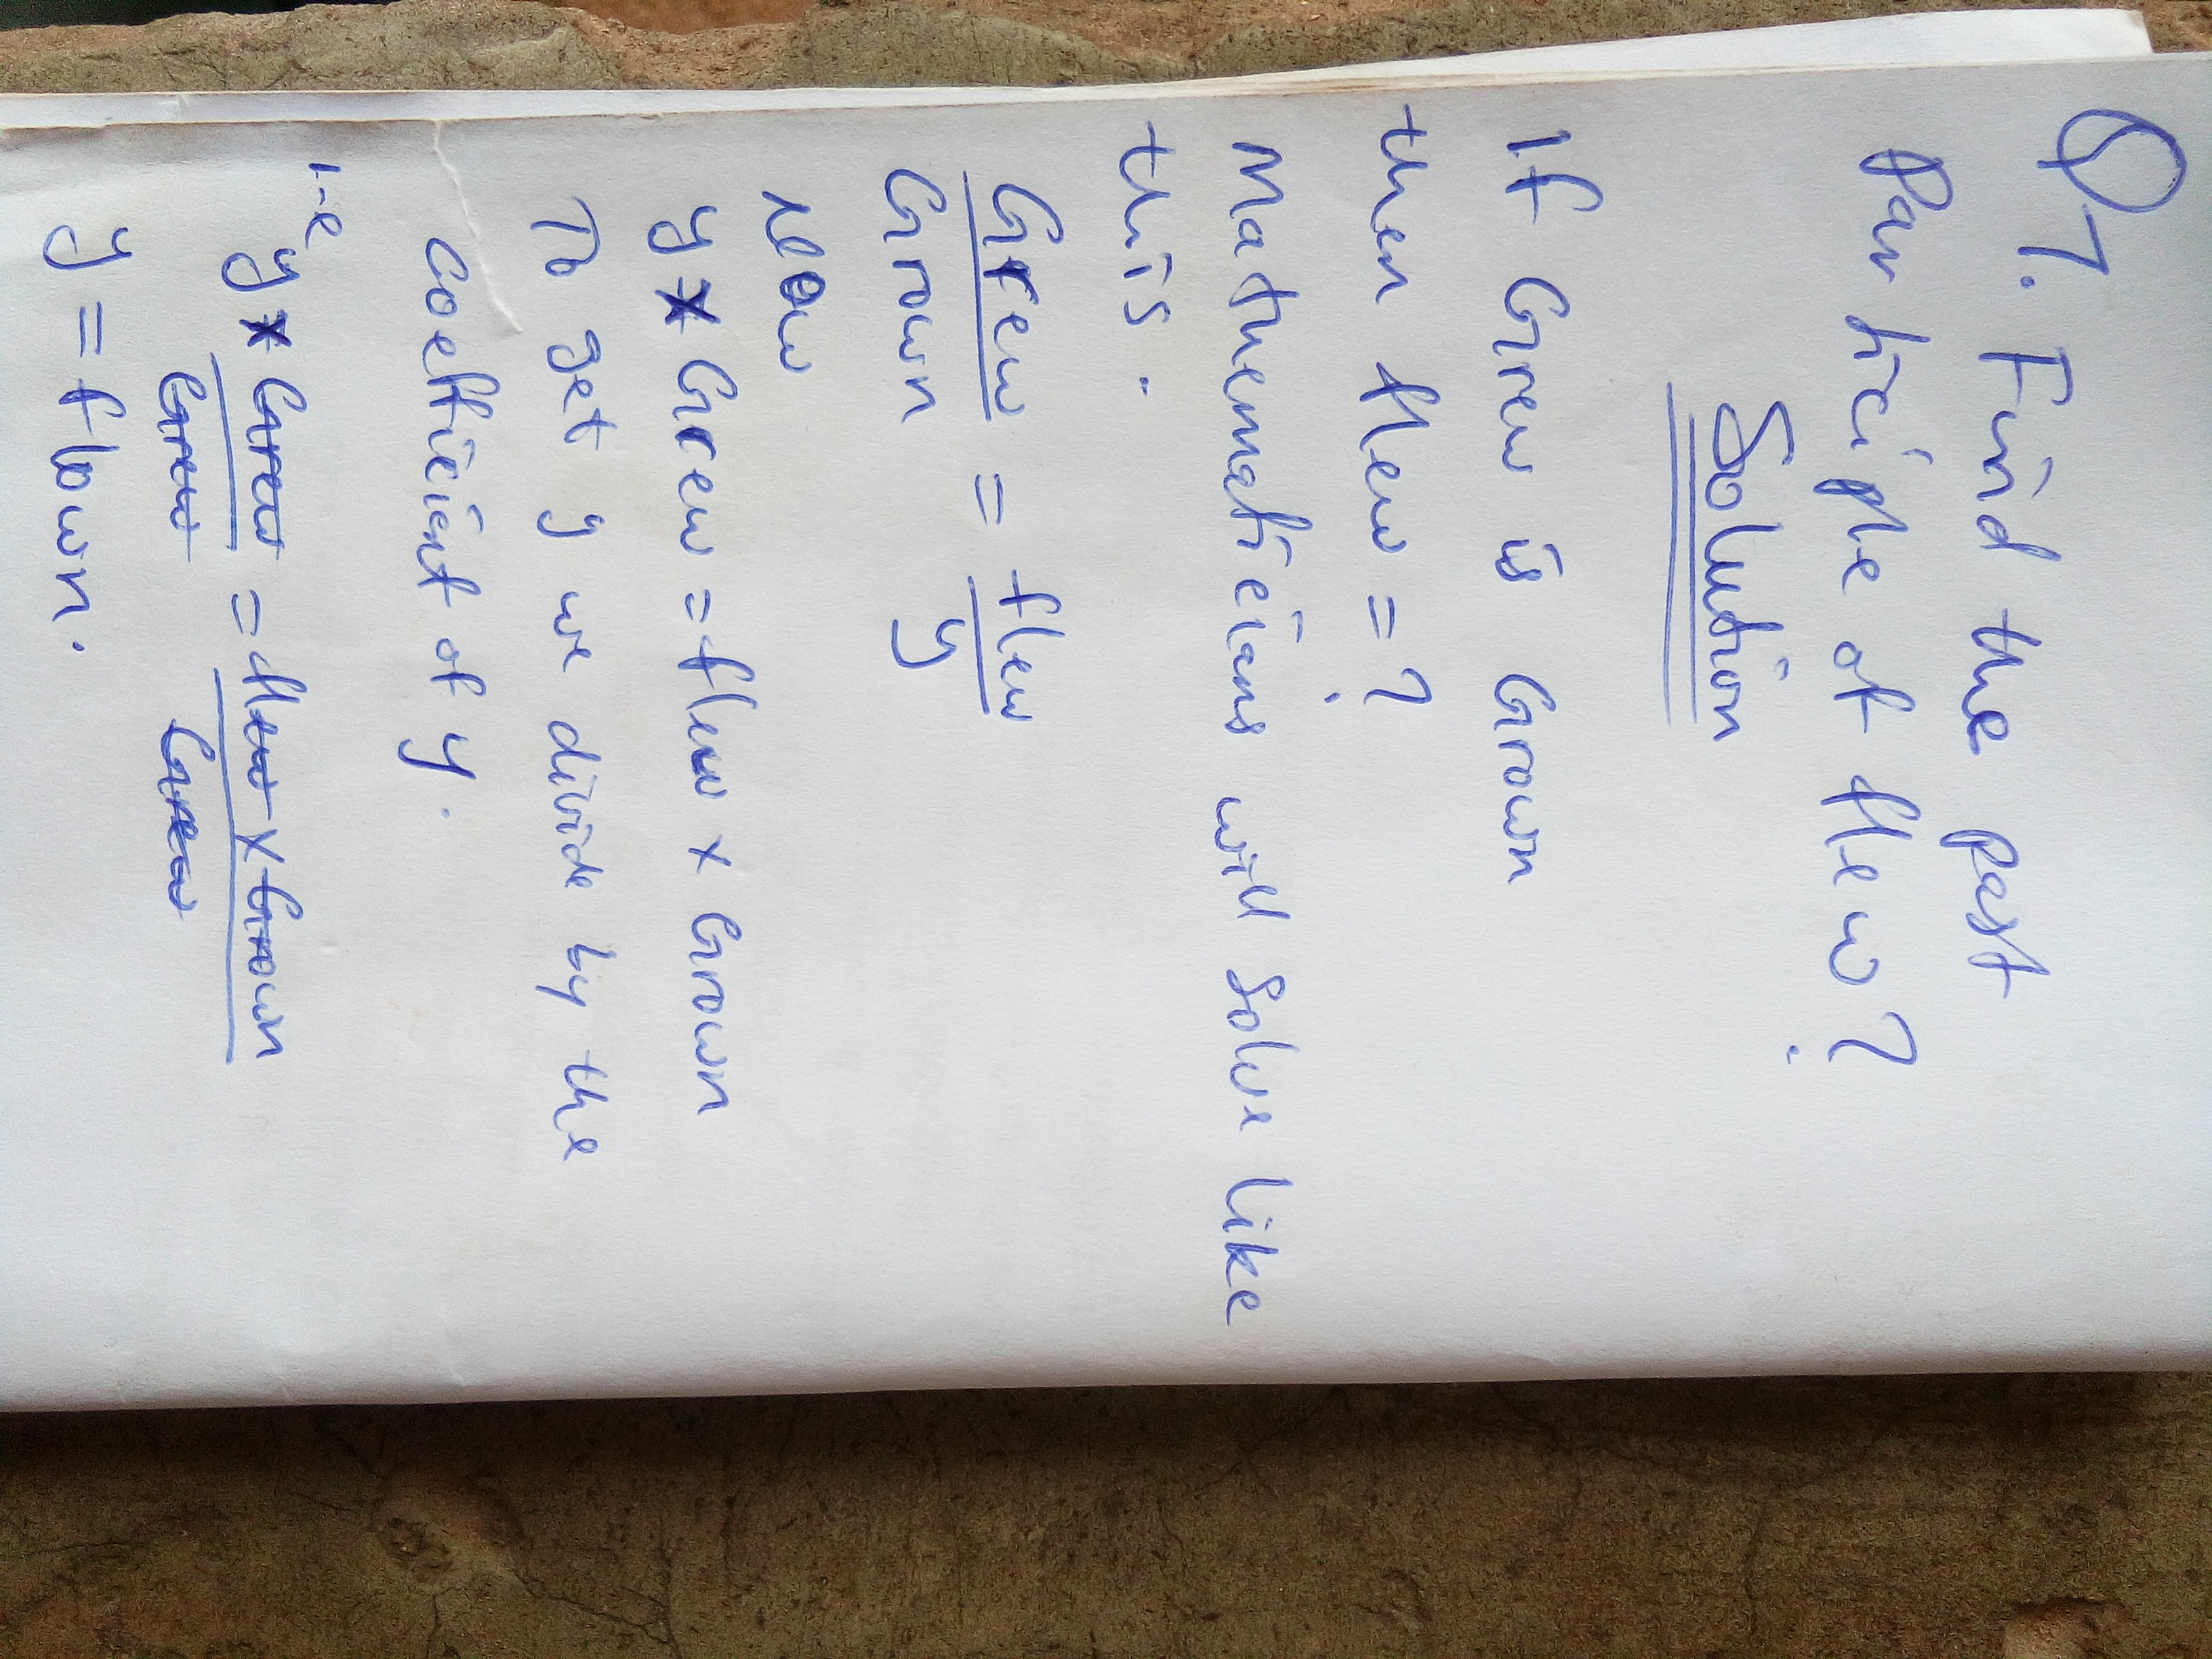 Q7. Find the past
Participle of flew?
Solution
If Grew is Grown
then flew = ?
Mathematicians will Solve like
this:
Grew = flew
Grown y
Now
y x Grew = flew x Grown
To get y we divide by the
coefficient of y.
i-e
y x Grew = flew x Grown
Grew Grew
y = flown.